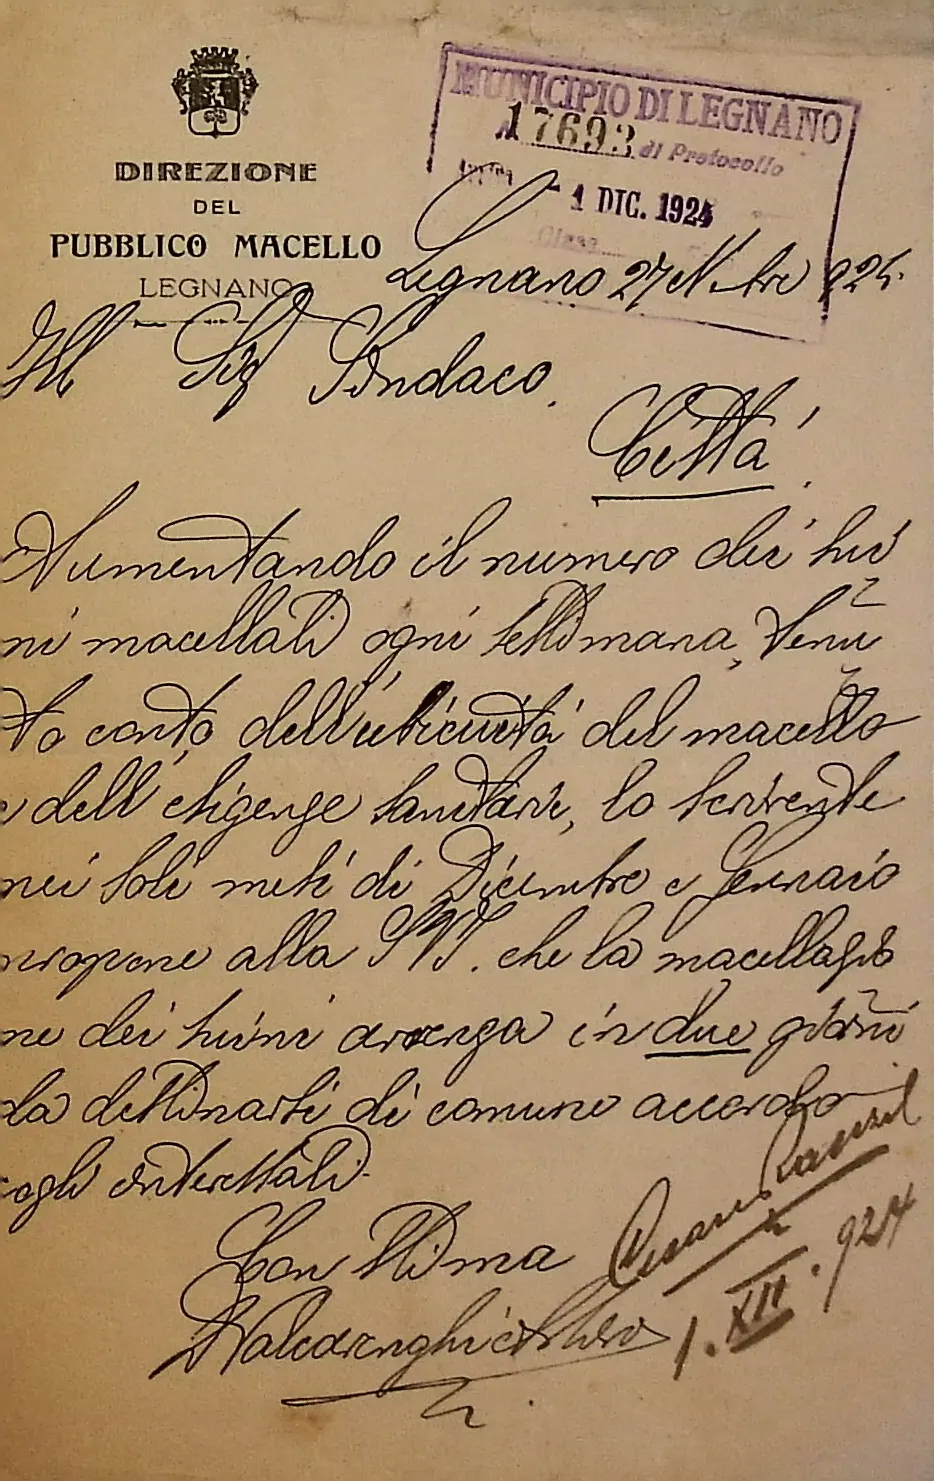 DIREZIONE
DEL
PUBBLICO MACELLO
LEGNANO
MUNICIPIO DI LEGNANO
N 17693 di Protocollo
- 1 DIC. 1924
Classe
Legnano 27 N.bre 924.
Ill Sig Sindaco.
Città.
Aumentando il numero dei sui
ni macellati ogni settimana, tenu
to conto dell'ubicuità del macello
e dell'esigenze sanitarie, lo scrivente
nei soli mesi di Dicembre e Gennaio
propone alla S.V. che la macellazio
ne dei suini avvenga in due giorni
da destinarsi di comune accordo
cogli interessati.
Con stima
Valcarenghi Arturo
1. XII. 924